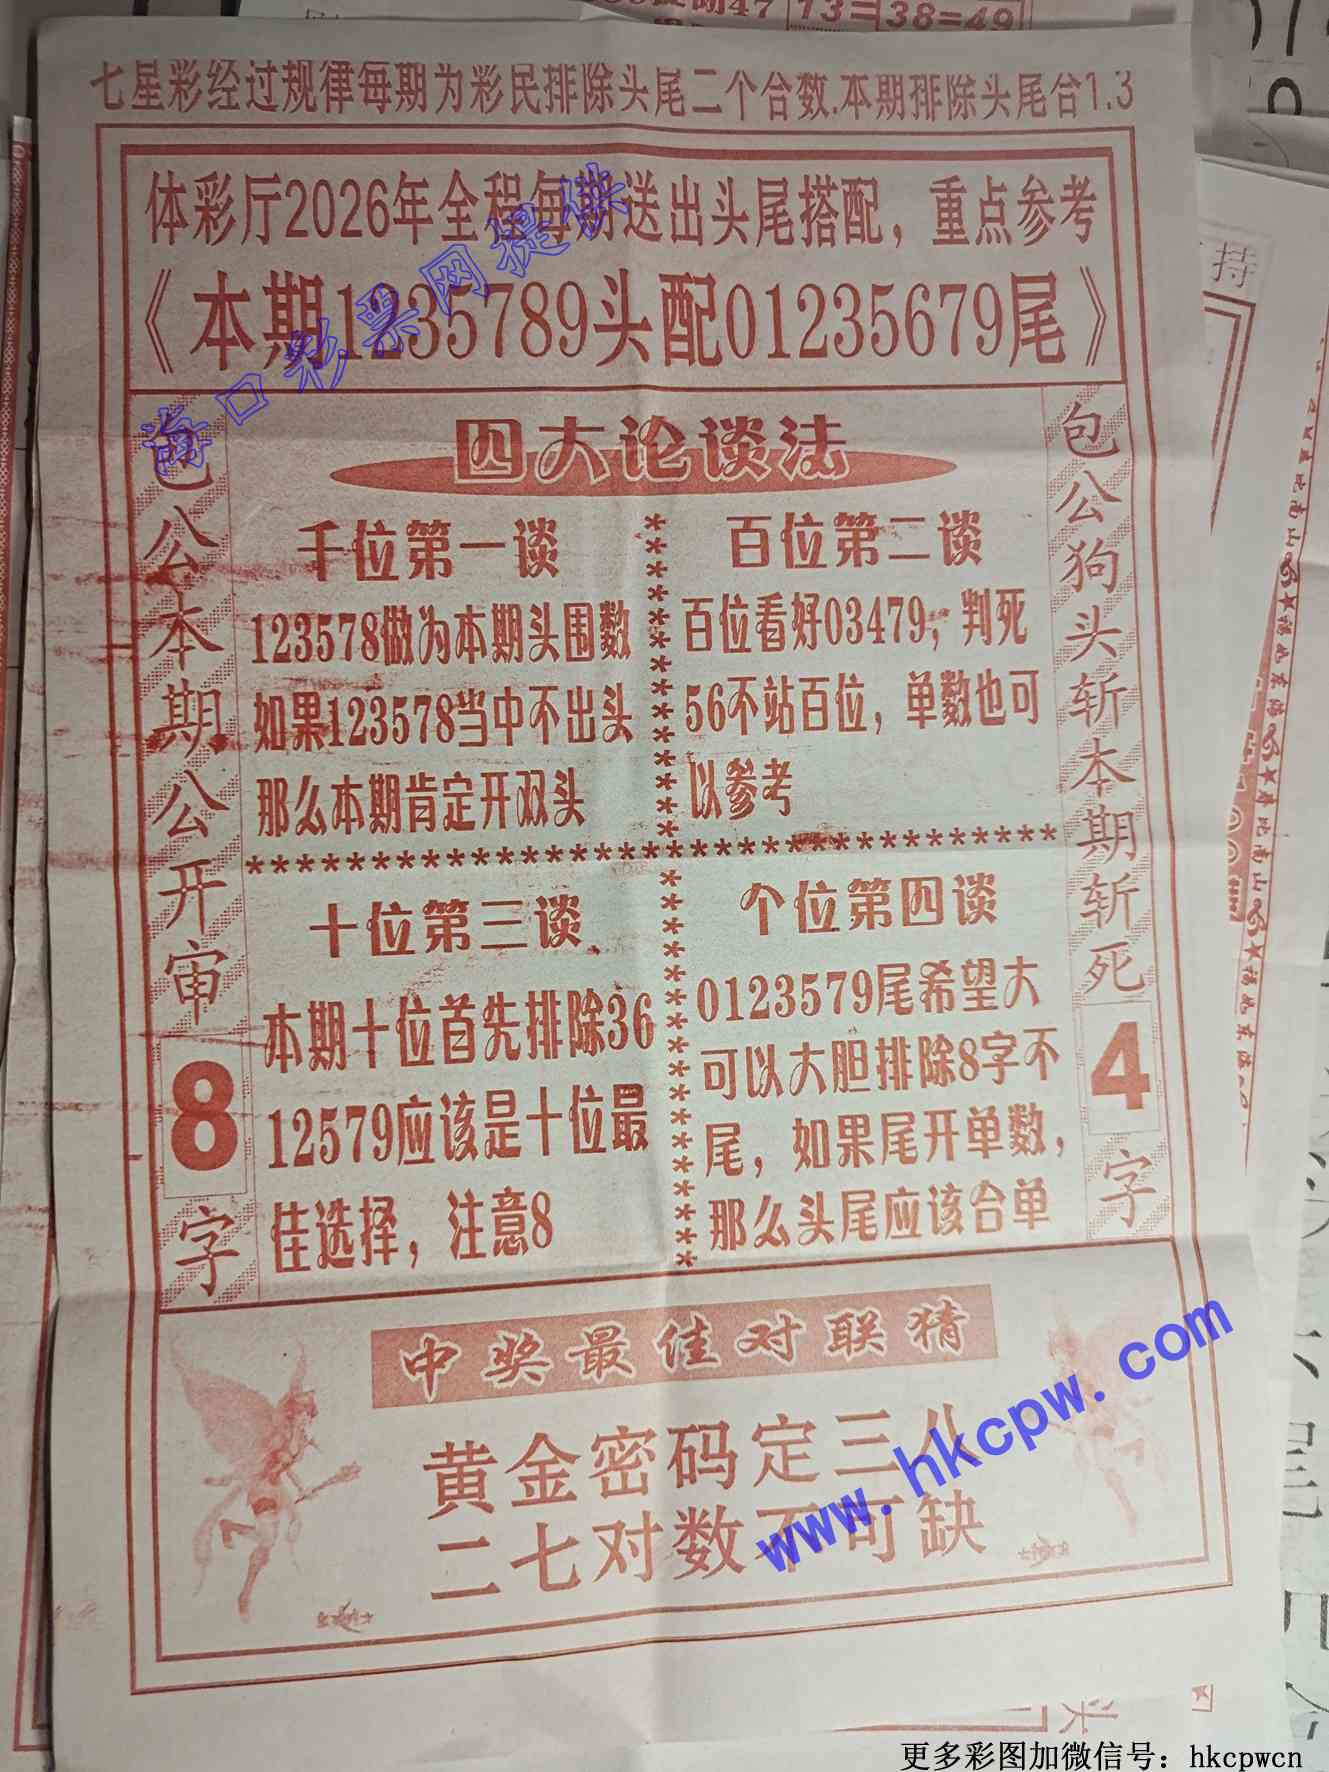 七星彩经过规律每期为彩民排除头尾二个合数.本期排除头尾合1.3
体彩厅2026年全程每期送出头尾搭配，重点参考
《本期1235789头配01235679尾》
海口彩票网提供
包公本期公开审8字
四大论谈法
包公狗头斩本期斩死4字
千位第一谈
123578做为本期头围数
如果123578当中不出头
那么本期肯定开双头
百位第二谈
百位看好03479，判死
56不站百位，单数也可
以参考
十位第三谈
本期十位首先排除36
12579应该是十位最
佳选择，注意8
个位第四谈
0123579尾希望大
可以大胆排除8字不
尾，如果尾开单数，
那么头尾应该合单
中奖最佳对联猜
黄金密码定三八
二七对数不可缺
www.hkcpw.com
13=38=49
持
更多彩图加微信号：hkcpwcn